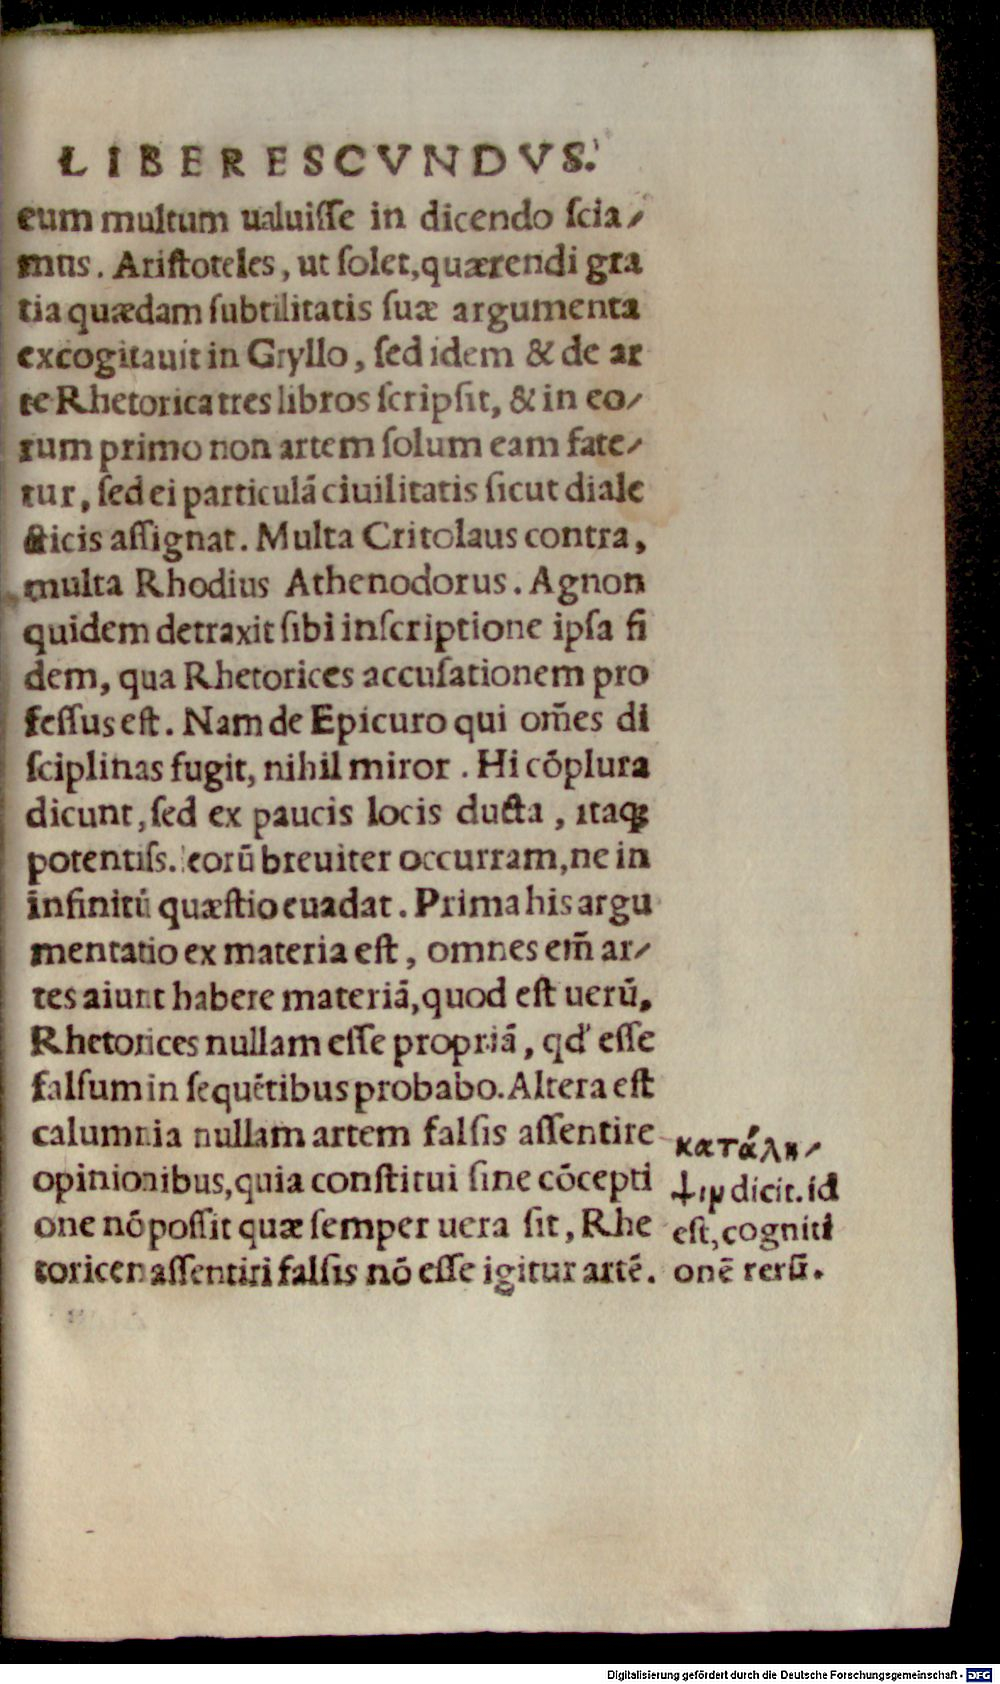 LIBER ESCVNDVS.
eum multum ualuisse in dicendo scia⸗
mus. Aristoteles, ut solet, quærendi gra
tia quædam subtilitatis suæ argumenta
excogitauit in Gryllo, sed idem & de ar
te Rhetorica tres libros scripsit, & in eo⸗
rum primo non artem solum eam fate⸗
tur, sed ei particulā ciuilitatis sicut diale
cticis assignat. Multa Critolaus contra,
multa Rhodius Athenodorus. Agnon
quidem detraxit sibi inscriptione ipsa fi
dem, qua Rhetorices accusationem pro
fessus est. Nam de Epicuro qui om̄es di
sciplinas fugit, nihil miror. Hi cōplura
dicunt, sed ex paucis locis ducta, itaq;
potentiss. eorū breuiter occurram, ne in
infinitū quæstio euadat. Prima his argu
mentatio ex materia est, omnes em̄ ar⸗
tes aiunt habere materiā, quod est uerū,
Rhetorices nullam esse propriā, qd' esse
falsum in sequētibus probabo. Altera est
calumnia nullam artem falsis assentire
opinionibus, quia constitui sine cōcepti
one nō possit quæ semper uera sit, Rhe
toricen assentiri falsis nō esse igitur artē.
κατάλη⸗
ψιμ dicit. id
est, cogniti
onē rerū.
Digitalisierung gefördert durch die Deutsche Forschungsgemeinschaft - DFG